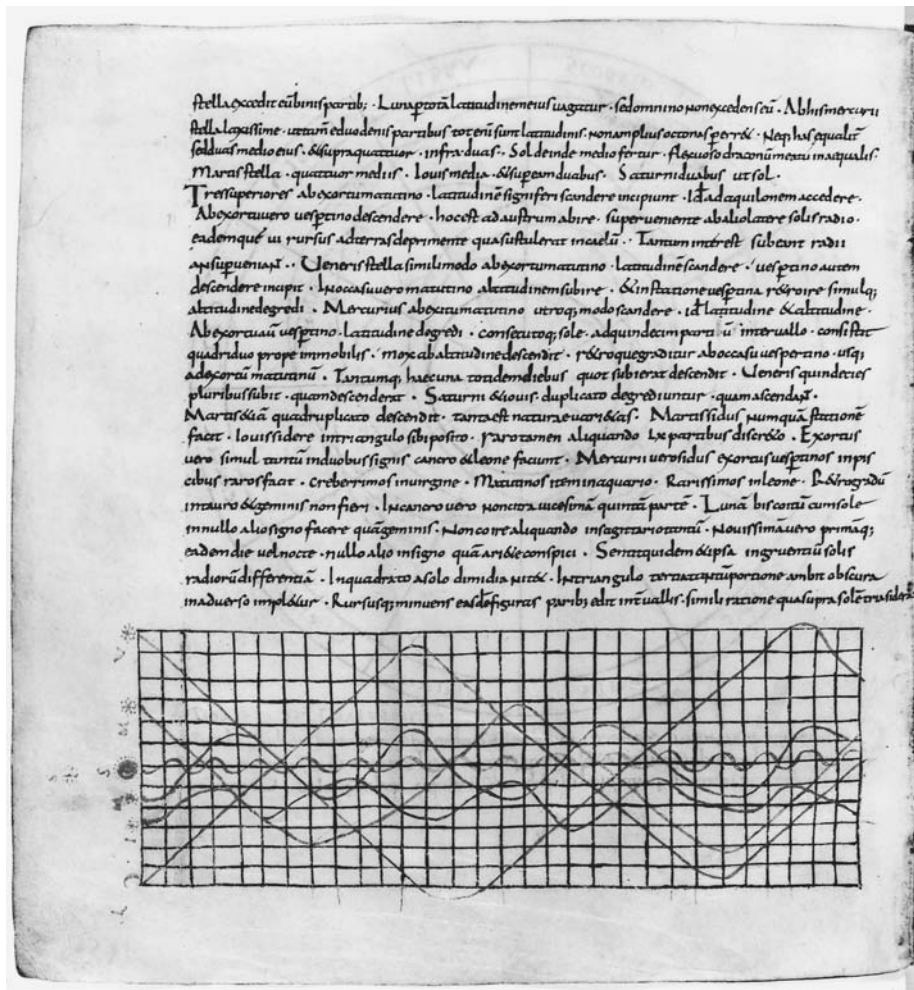 stella excedit eū binis partib; · Luna p totā latitudinem eius vagatur · sed omnino non excedens eū · Ab his mercurii
stella laxissime · ut tam̄ e duodenis partibus tot enī sunt latitudinis · non amplius octonas perr& · Neq; has equalit̄
sed duas medio eius · & supra quattuor · infra duas · Sol deinde medio fertur · flexuoso draconū meatu inaequalis ·
Martis stella · quattuor mediis · Iouis media · & sup eam duabus · Saturni duabus ut sol ·
Tres superiores ab exortu matutino · latitudinē signiferi scandere incipiunt · Id÷ ad aquilonem accedere ·
Ab exortu uero vesptino descendere · hoc est ad austrum abire · superveniente ab alio latere solis radio ·
eademque vi rursus ad terras deprimente qua sustulerat in caelū · Tantum interest subeant radii
an superveniant · Veneris stella simili modo ab exortu matutino · latitudinē scandere · vesptino autem
descendere incipit · In occasu vero matutino altitudinem subire · & in statione vesptina r&roire simulq;
altitudine degredi · Mercurius ab exortu matutino utroq; modo scandere · id÷ latitudine & altitudine ·
Ab exortu aū vesptino · latitudine degredi · consecutoq; sole · ad quindecim partiū intervallo · consistit
quadriduo prope immobilis · mox ab altitudine descendit · r&roque graditur ab occasu vespertino · usq;
ad exortū matutinū · Tantumq; haec una totidem diebus quot subierat descendit · Veneris quindecies
pluribus subit · quam descenderat · Saturni & iouis · duplicato degrediuntur · quam ascendant ·
Martis &iā quadruplicato descendit · tanta est naturae vari&as · Martis sidus numquā stationē
facit · Iouis sidere in triangulo sibi posito · raro tamen aliquando lx partibus discr&o · Exortus
vero simul tantū in duobus signis cancro & leone faciunt · Mercurii vero sidus exortus vesptinos in pis
cibus raros facit · creberrimos in virgine · Matutinos item in aquario · Rarissimos in leone · R&rogradū
in tauro & geminis non fieri · In cancro vero non citra vicesimā quintā partē · Lunā bis coitū cum sole
in nullo alio signo facere quā geminis · Non coire aliquando in sagittario tantū · Novissimā vero primāq;
eadem die vel nocte · nullo alio in signo quā ari&e conspici · Sentit quidem & ipsa ingruentiū solis
radiorū differentiā · In quadrato a sole dimidia nit& · In triangulo
in adverso impl&ur · Rursusq; minuens easdē figuras parib; edit intvallis · simili ratione qua supra solē tria sidera